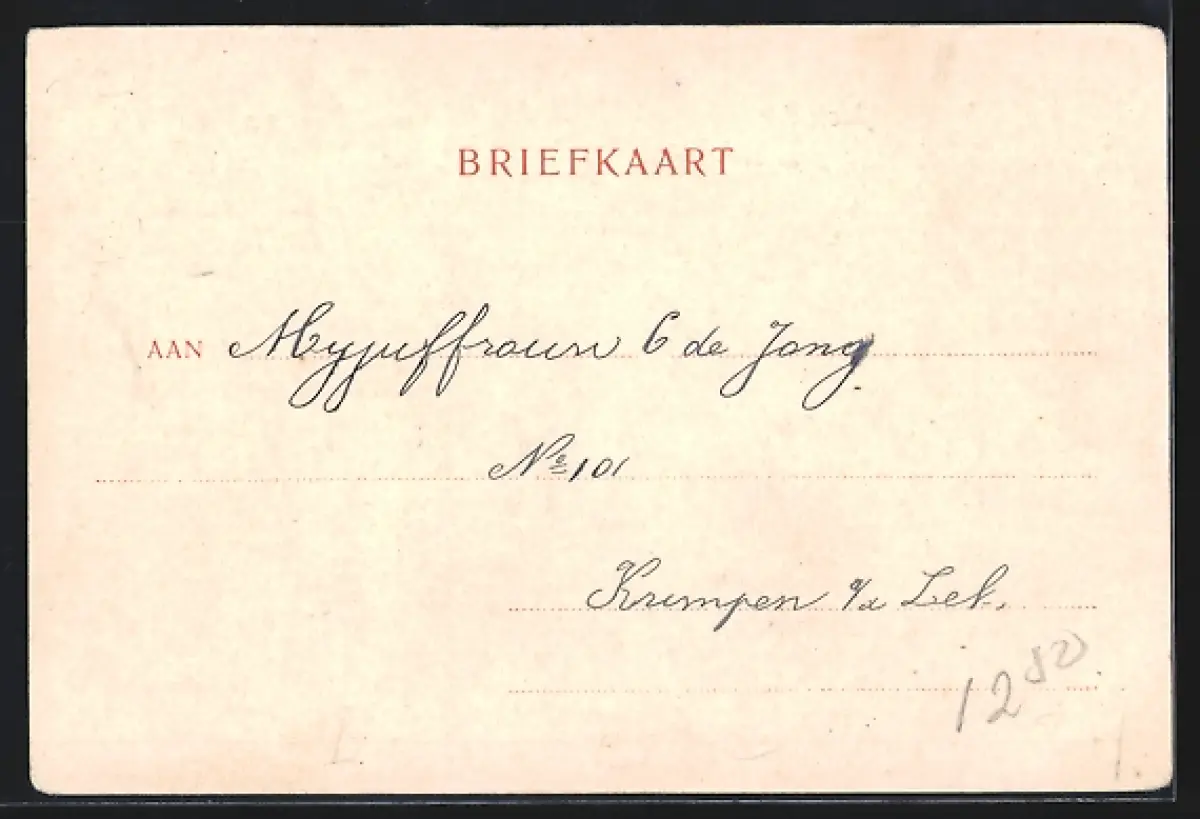 BRIEFKAART
AAN Mejjuffrouw C de Jong.
No 101
Krimpen a/d Lek.
12 50